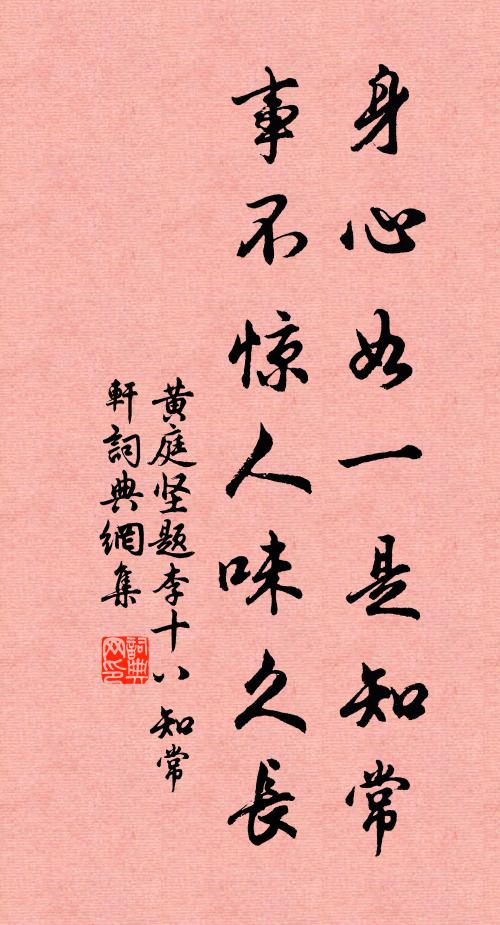 身心如一是知常
事不惊人味久長
黄庭坚题李十八知常
軒詞典網集
詞典
网印